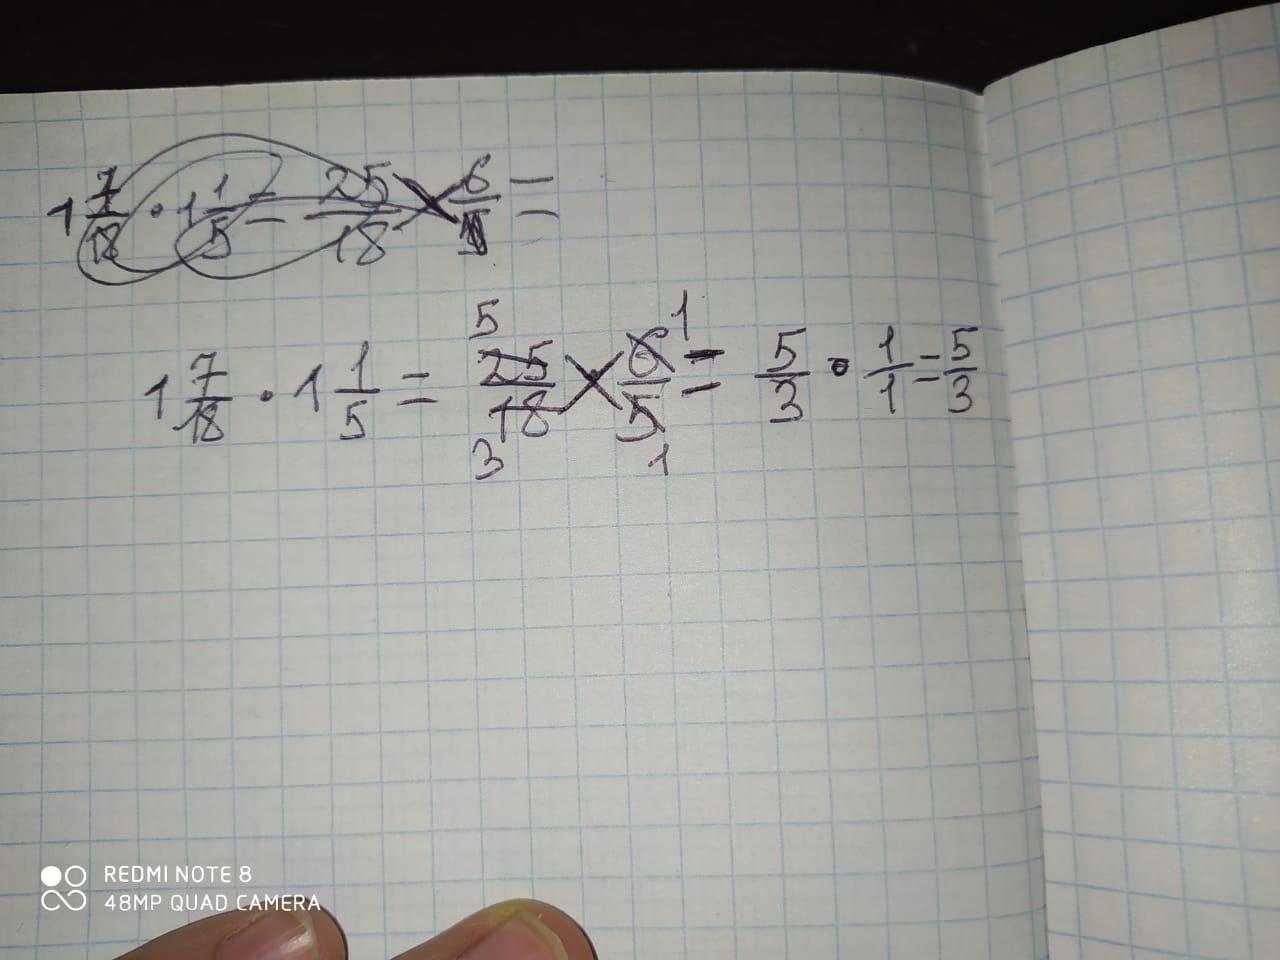 1 7/18 · 1 1/5 = 25/18 × 6/5 =
1 7/18 · 1 1/5 = 5 25/18 3 × 6/5 1 1 = 5/3 · 1/1 = 5/3
REDMI NOTE 8
48MP QUAD CAMERA